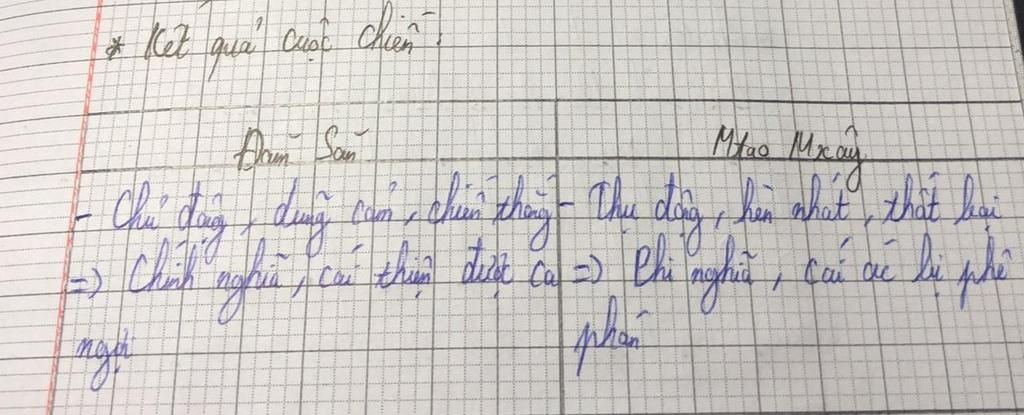 * Kết quả cuộc chiến:
Đăm Săn
Mtao Mxây
- Chủ động, dũng cảm, chiến thắng
=> Chính nghĩa, cái thiện được ca
ngợi
- Thụ động, hèn nhát, thất bại
=> Phi nghĩa, cái ác bị phê
phán